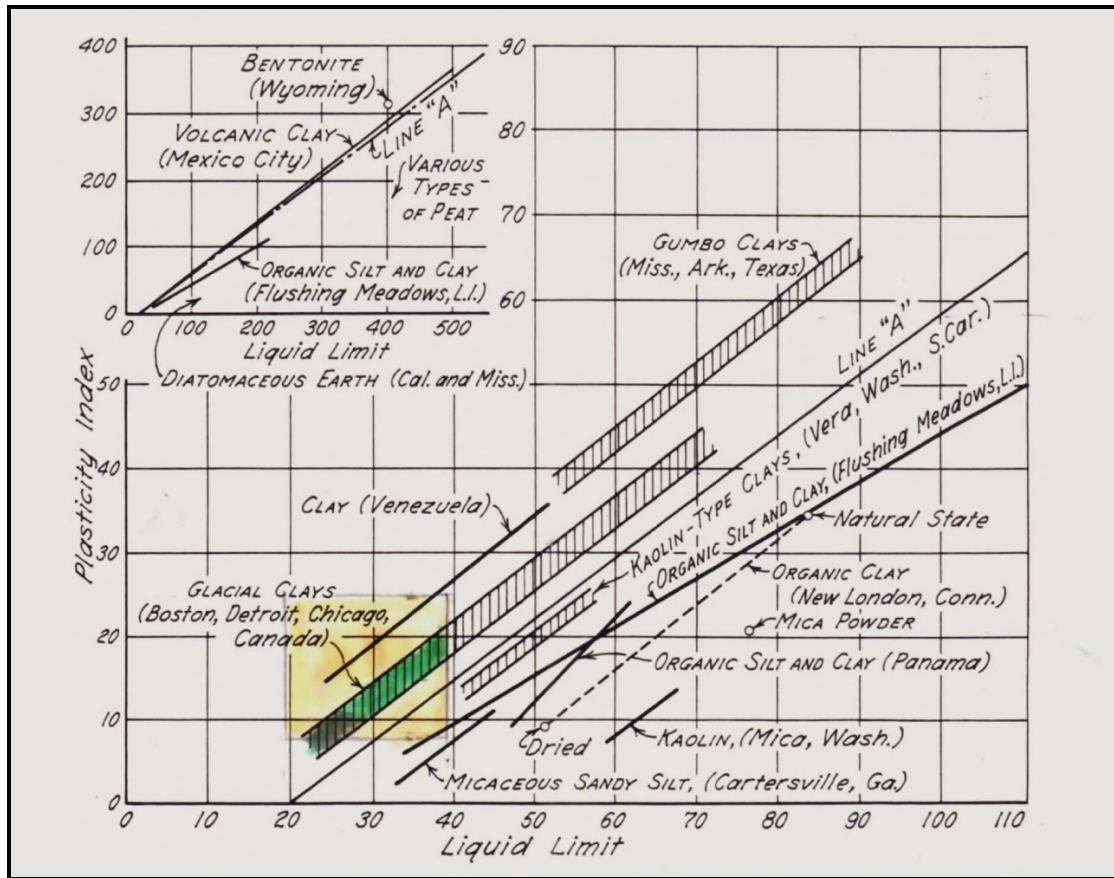 400
300
200
100
0
BENTONITE
(Wyoming)
VOLCANIC CLAY
(Mexico City)
LINE "A"
VARIOUS
TYPES
OF PEAT
ORGANIC SILT AND CLAY
(Flushing Meadows, L.I.)
0 100 200 300 400 500
Liquid Limit
DIATOMACEOUS EARTH (Cal. and Miss.)
90
80
70
60
50
40
30
20
10
0
Plasticity Index
GUMBO CLAYS
(Miss., Ark., Texas)
LINE "A"
CLAY (Venezuela)
KAOLIN-TYPE CLAYS, (Vera, Wash., S.Car.)
ORGANIC SILT AND CLAY, (Flushing Meadows, L.I.)
Natural State
GLACIAL CLAYS
(Boston, Detroit, Chicago,
Canada)
ORGANIC CLAY
(New London, Conn.)
MICA POWDER
ORGANIC SILT AND CLAY (Panama)
Dried
KAOLIN, (Mica, Wash.)
MICACEOUS SANDY SILT, (Cartersville, Ga.)
0 10 20 30 40 50 60 70 80 90 100 110
Liquid Limit